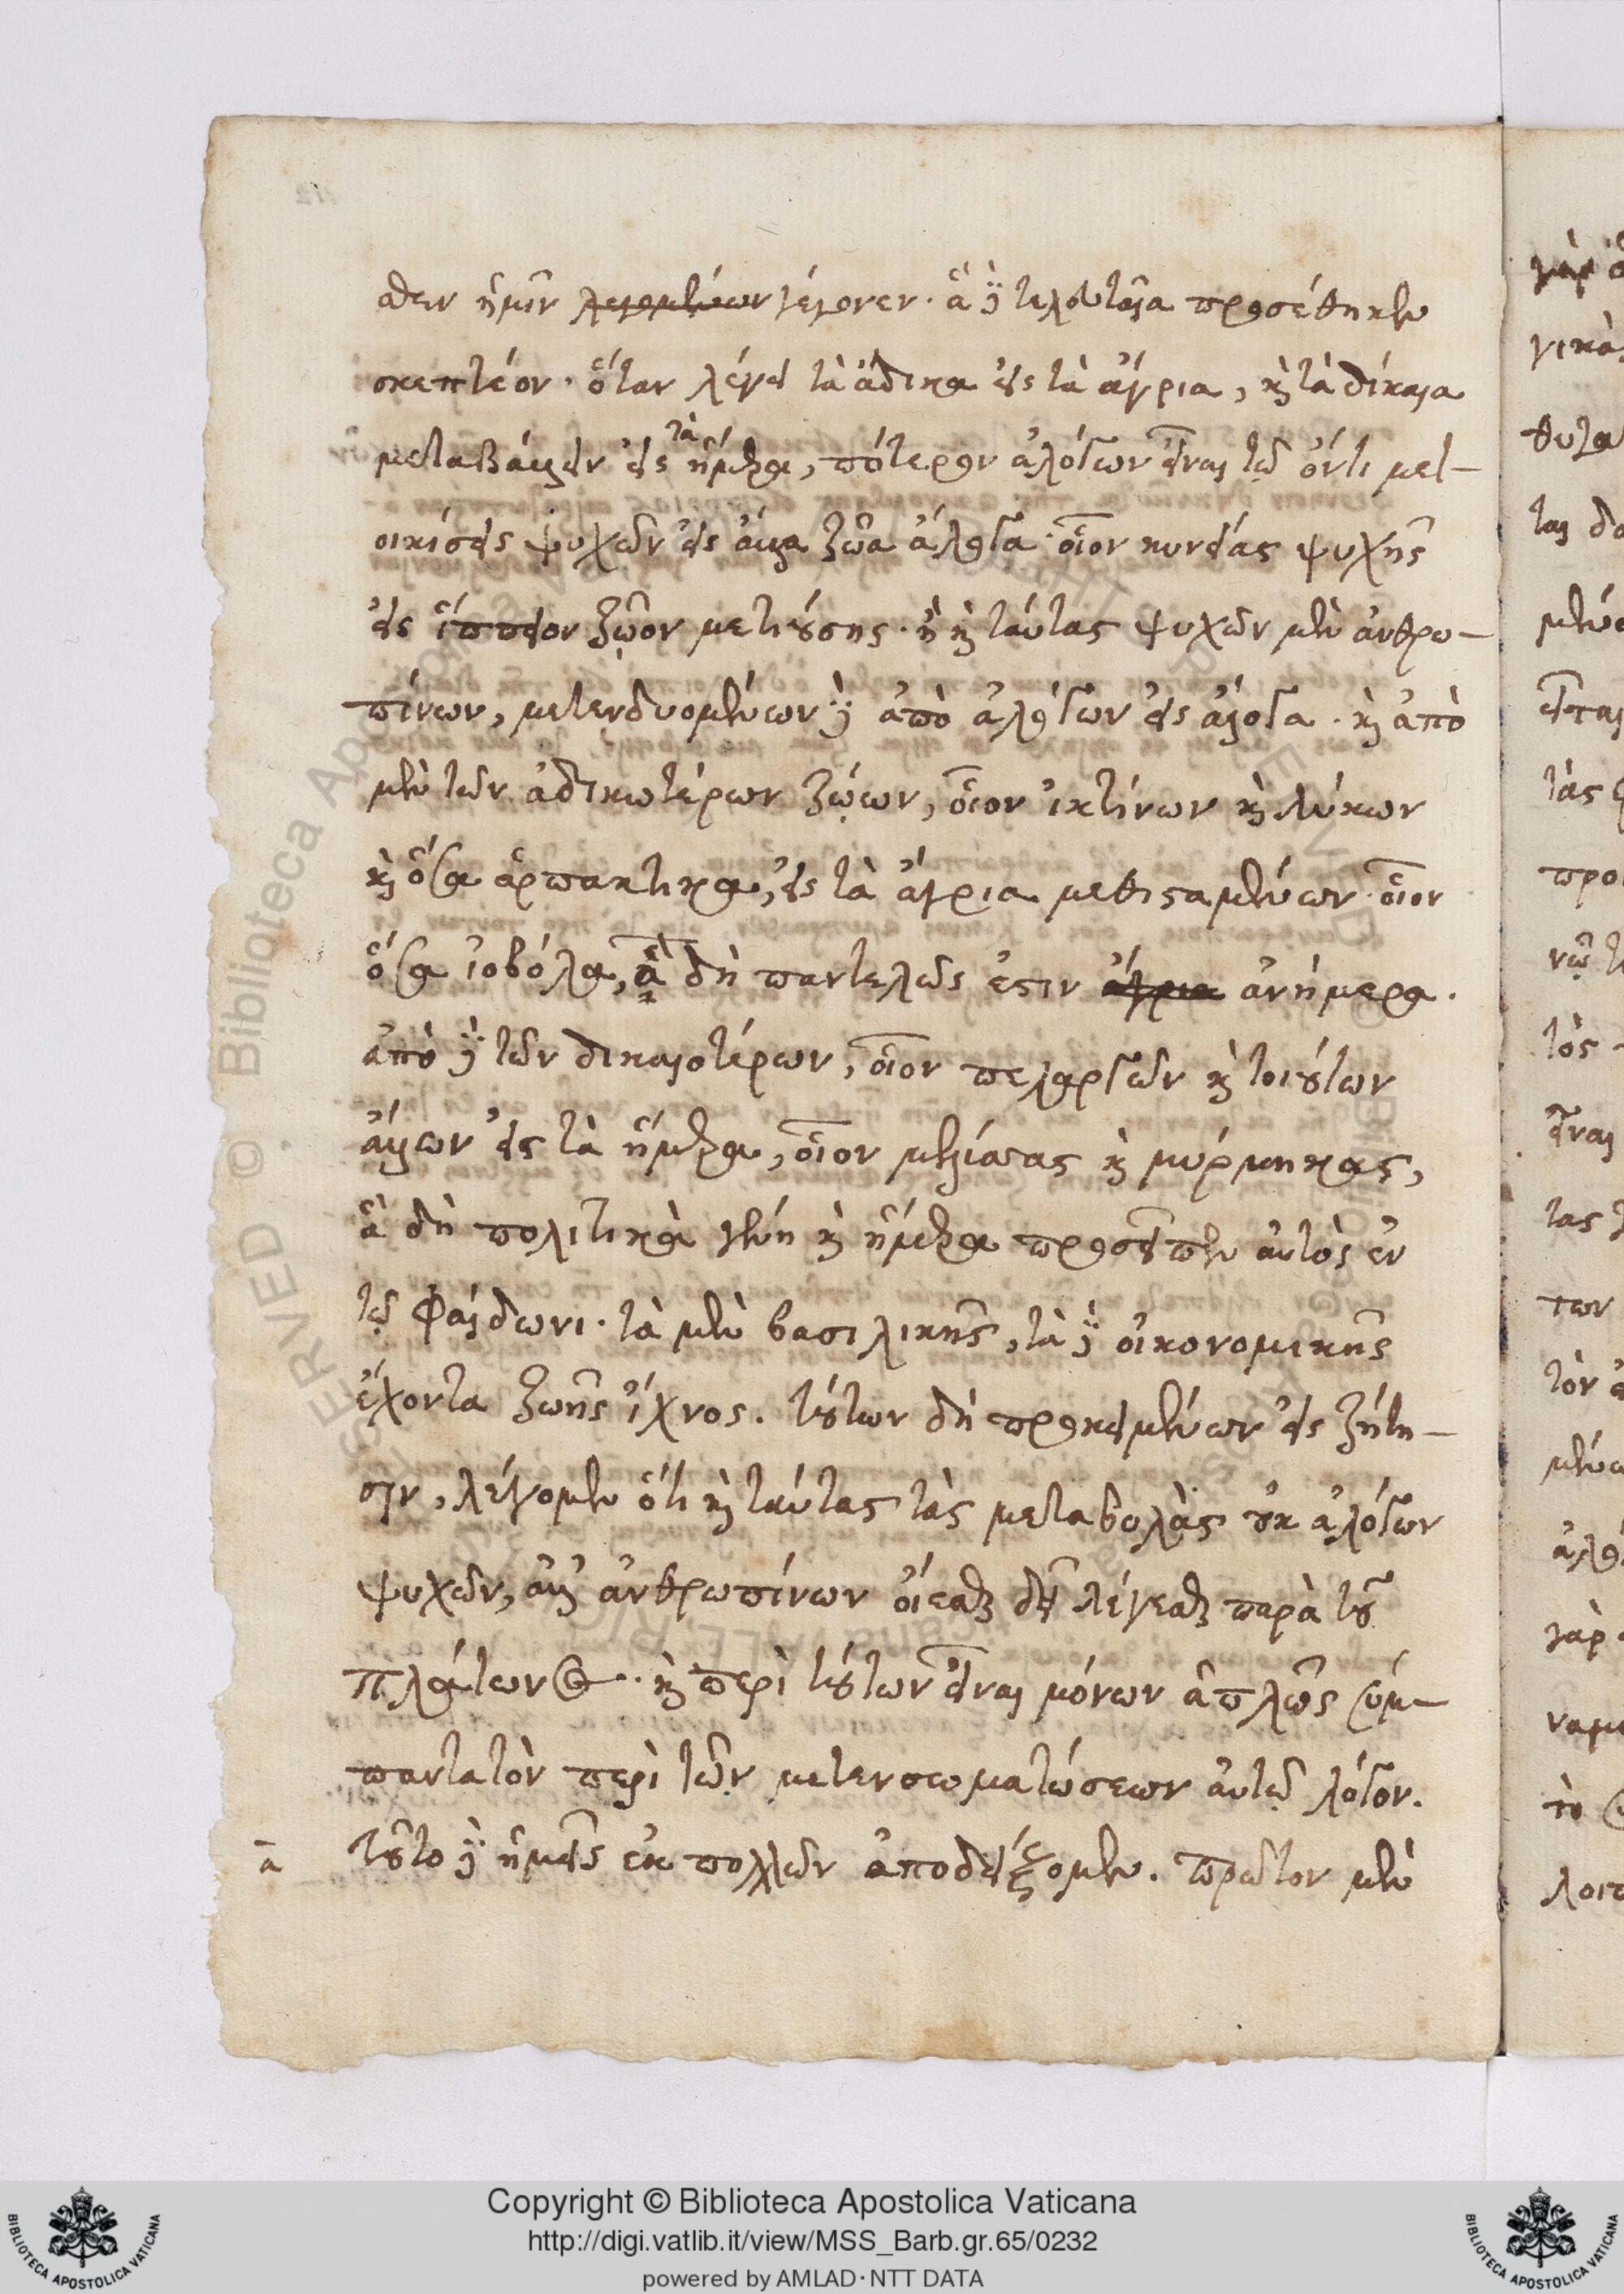 σθεν ἡμῖν λεγομένων γέγονεν. ἃ δὲ τελευταῖα προσέθηκεν
σκεπτέον. ὅταν λέγει τὰ ἄδικα εἰς τὰ ἄγρια, καὶ τὰ δίκαια
μεταβάλλειν εἰς τὰ ἥμερα, πότερον ἀλόγων εἶναι τῷ ὄντι μετ-
οικίσεις ψυχῶν εἰς ἄλλα ζῶα ἄλογα. οἷον κυνείας ψυχῆς
εἰς ἵππειον ζῷον μετιούσης. ἢ καὶ ταύτας ψυχῶν μὲν ἀνθρω-
πίνων, μετενδυομένων δὲ ἀπὸ ἀλόγων εἰς ἄλογα. καὶ ἀπὸ
μὲν τῶν ἀδικωτέρων ζῴων, οἷον ἰκτίνων καὶ λύκων
καὶ ὅσα ἁρπακτικα, εἰς τὰ ἄγρια μεθισταμένων. οἷον
ὅσα ἰοβόλα, ἃ δὴ παντελῶς ἐστιν ἄγρια ἀνήμερα.
ἀπὸ δὲ τῶν δικαιοτέρων, οἷον πελαργῶν καὶ τοιούτων
ἄλλων εἰς τὰ ἥμερα, οἷον μελίσσας καὶ μύρμηκας,
ἃ δὴ πολιτικὰ γένη καὶ ἥμερα προσεῖπεν αὐτὸς ἐν
τῷ Φαίδωνι. τὰ μὲν βασιλικῆς, τὰ δὲ οἰκονομικῆς
ἔχοντα ζωῆς ἴχνος. τούτων δὴ προκειμένων εἰς ζήτη-
σιν, λέγομεν ὅτι καὶ ταύτας τὰς μεταβολὰς οὐκ ἀλόγων
ψυχῶν, ἀλλ' ἀνθρωπίνων οἴεσθαι δεῖ λέγεσθαι παρὰ τοῦ
Πλάτωνος. καὶ περὶ τούτων εἶναι μόνων ἁπλῶς σύμ-
παντα τὸν περὶ τῶν μετενσωματώσεων αὐτῷ λόγον.
α τοῦτο δὲ ἡμεῖς ἐκ πολλῶν ἀποδείξομεν. πρῶτον μὲν
Copyright © Biblioteca Apostolica Vaticana
http://digi.vatlib.it/view/MSS_Barb.gr.65/0232
powered by AMLAD · NTT DATA